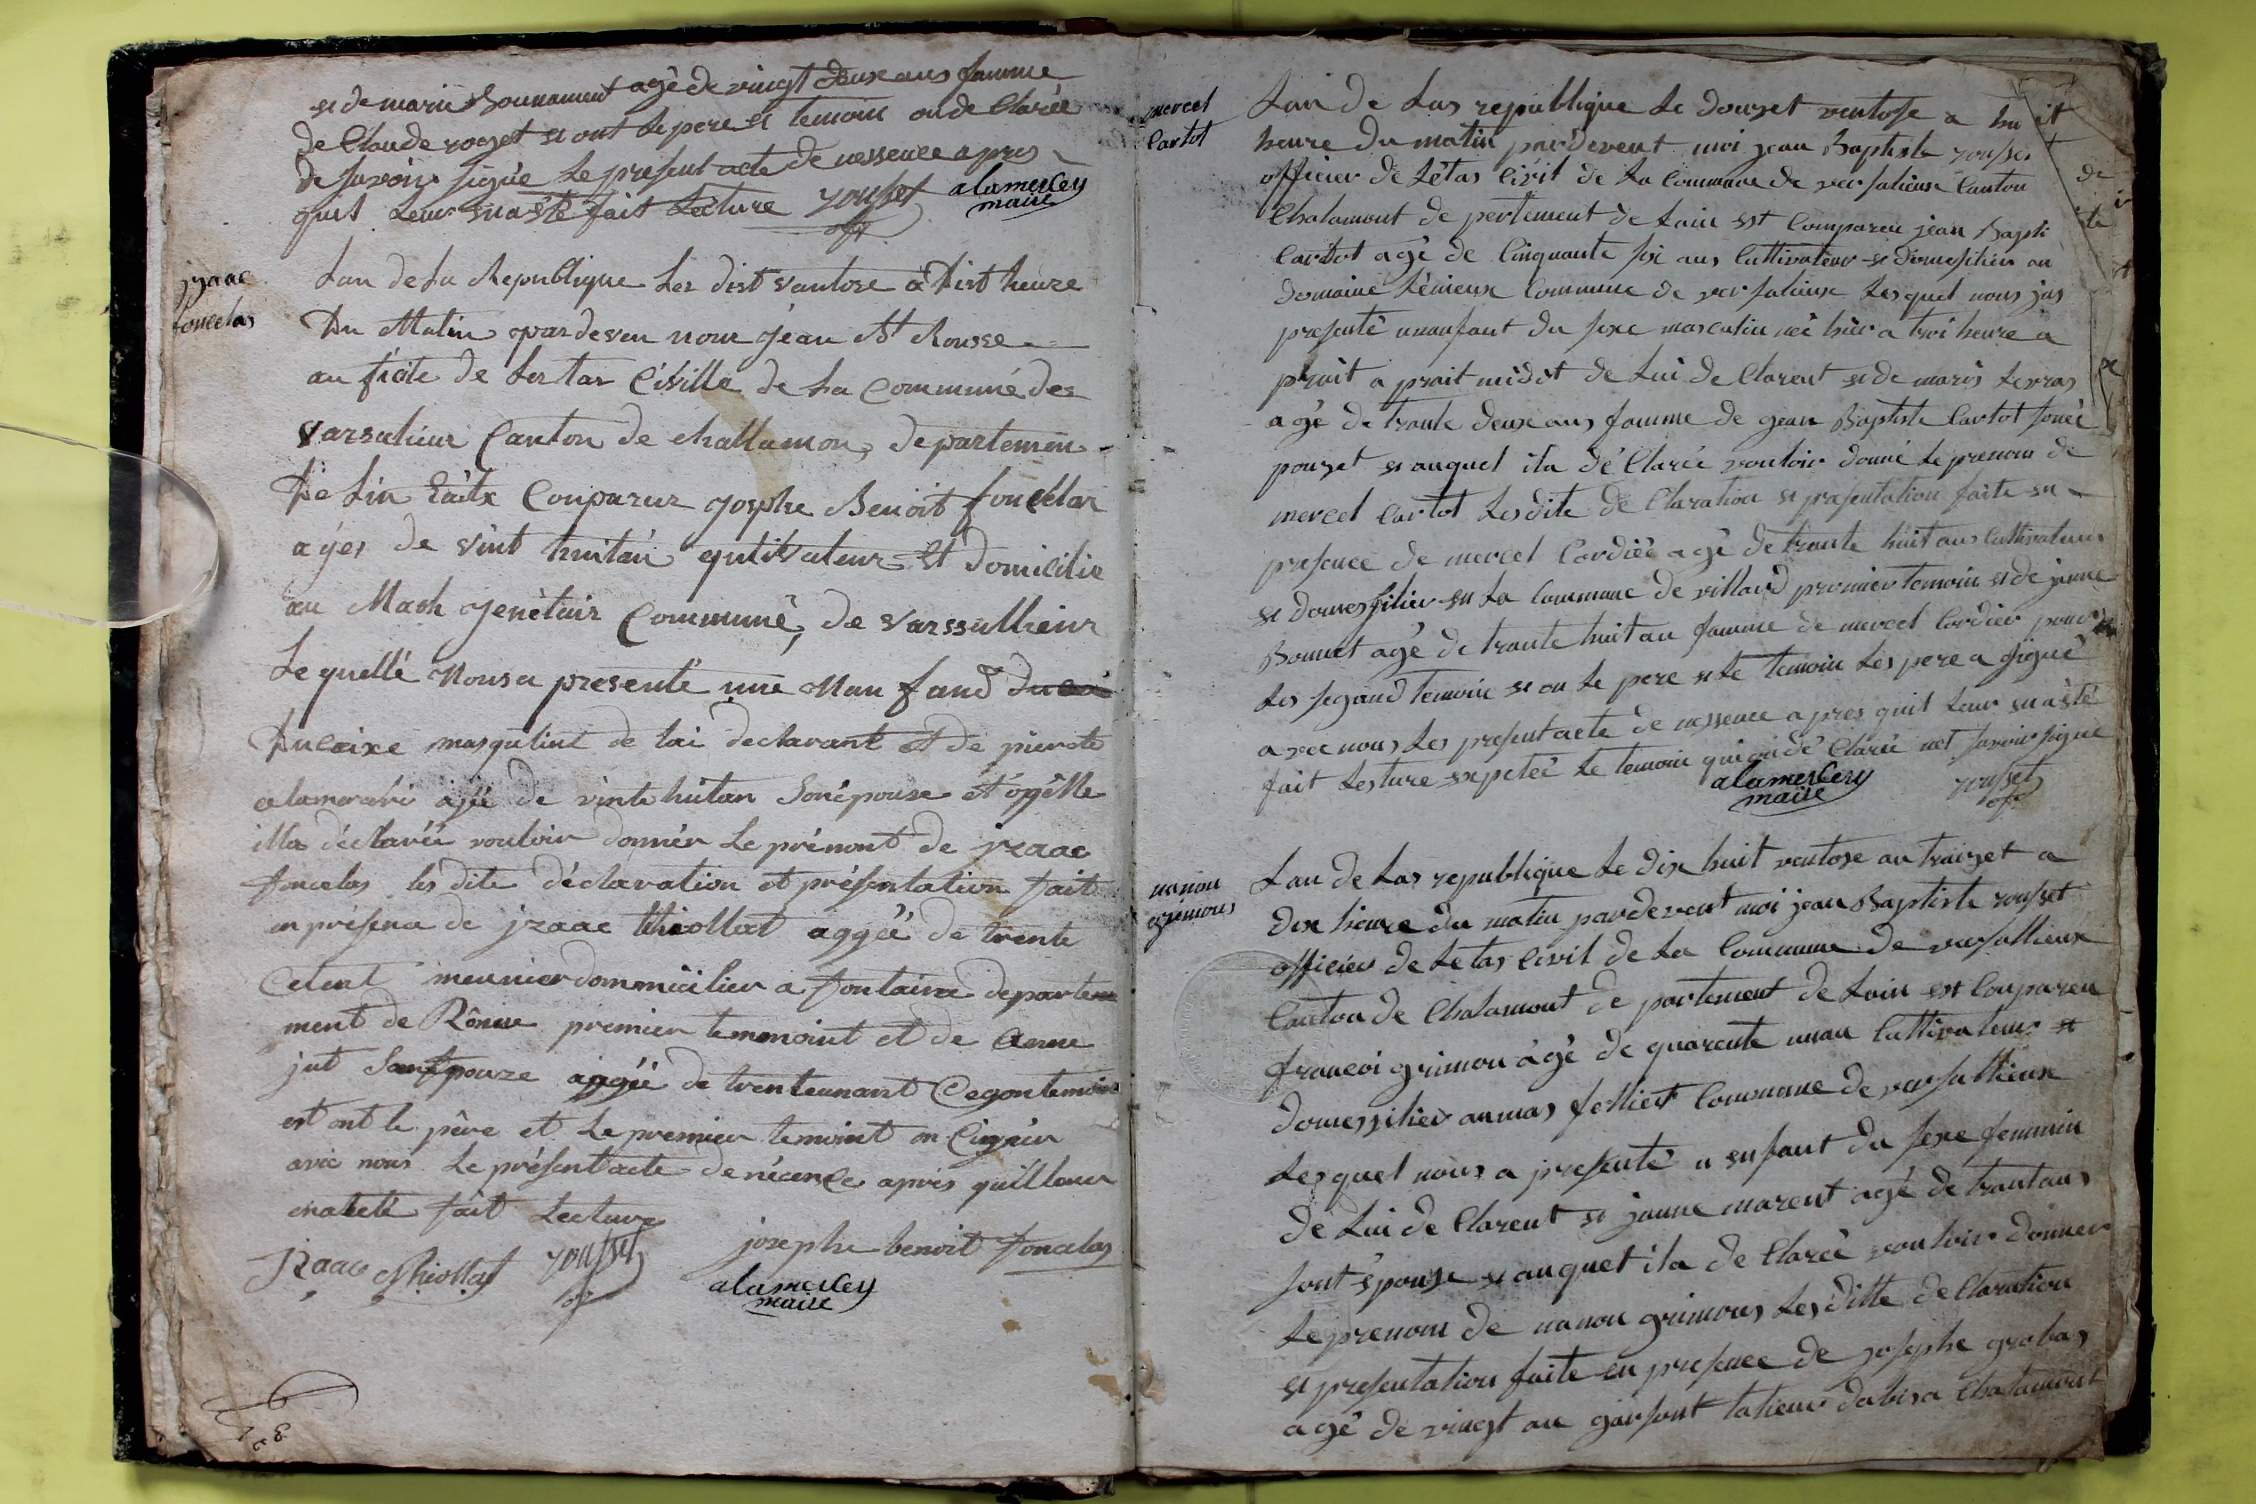 et de marie Bounament agé de vingt deux ans famme
de Claude rozet et ont le pere et temoin on de Clarée
de savoir signée le present acte de nessence apres
quil leur en a sté fait lecture rousset alamercery
off maire
jzaac
foncelas
Lan de La Republique Les dist vantose a dist heure
Du Matin pardeven nour jean Bt Rousse
au ficite de Les tar Civille de La Communé des
varsalieur Canton de challamon, departemen
De Lin Eaitx Conparur josphe Benoit foncelar
agér de vint huitan qultivateur Et Domicilie
au Mash jenétair Communé, de varssallieur
Le quellé Nous a presenté une Nan fand
Du caixe masqulint de lui declarant et de pierote
alamercéri ajée de vinte huitan Son épouse et oqélle
illa déclarée vouloir donnér Le prénont de jzaac
foncelas les dite déclaration et présentation fait
en présence de jzaac thiollat aggéé de trente
cetent meunier dommicilier a fontaine departe
ment de Rône premier temmoint et de Anne
jut Son epouze aggéé de trenteunant Cegontemoin
est ont le pére et Le premier temoint on Cignér
avic nous Le présent acte de nécence aprés quilleur
enateté fait Lecture
jzaac thiollat rousset josephe benoit foncelas
of alamercery
maire
mercel
Cartot
Lan de Las republique Le douzet ventose a huit
heure du matin pardevent moi jean Baptiste rousset
officier de Létas Civit de La Commune de versalieux Canton
Chalamont de pertement de Lain est Comparеu jean Bapti
Cartot agé de Cinquante six ans Cultivateur et domesilier au
domaine Lémeux Commune de versalieux Lesquel nous jas
presenté un anfant du sexe mascutin né hier a troi heure a
prait a prait midit de Lui de Clarent et de maris Levras
agé de trante deux ans famme de jean Baptiste Cartot sonéé
pouzet et auquel ila dé Clarée vouloir donné Le prenom de
mercel Cartot Les dite de Claration et presentation faite en
presence de mercel Cordiéé agé de trante huit ans Cultivateur
et domessilier en La Commune de villard premier temoin et de janne
Bonnet agé de trante huit an famme de mercel Cordier pour
Les segand temoin et on Le pere et Le temoin Les pere a signé
avec nous Les present acte de nessence apres quil Leur en a sté
fait Lesture expeteé Le temoin qui on dé Clarée net savoir signe
alamercery rousset
maire of
nanon
grimous
Lan de Las republique Le dix huit ventose an traizet a
dix heure du matin pardevent moi jean Baptiste rousset
officier de Letas Civil de La Commune de versallieux
Canton de Chalamont de partement de Lain est Conpareu
francoi grimon agé de quarente unan Cultivateur et
domessilier au mas folliet Commune de versallieux
Lesquel nous a presenté u enfant du sexe feminin
de Lui de Clarent et janne marent agé de trantans
sont épouse et auquet ila de Claréé vouloir donner
Le prenom de nanon grimous Les ditte de Claration
et presentation faite en presence de josephe grobas
agé de vingt an garsont talieur dabis a Chalamont